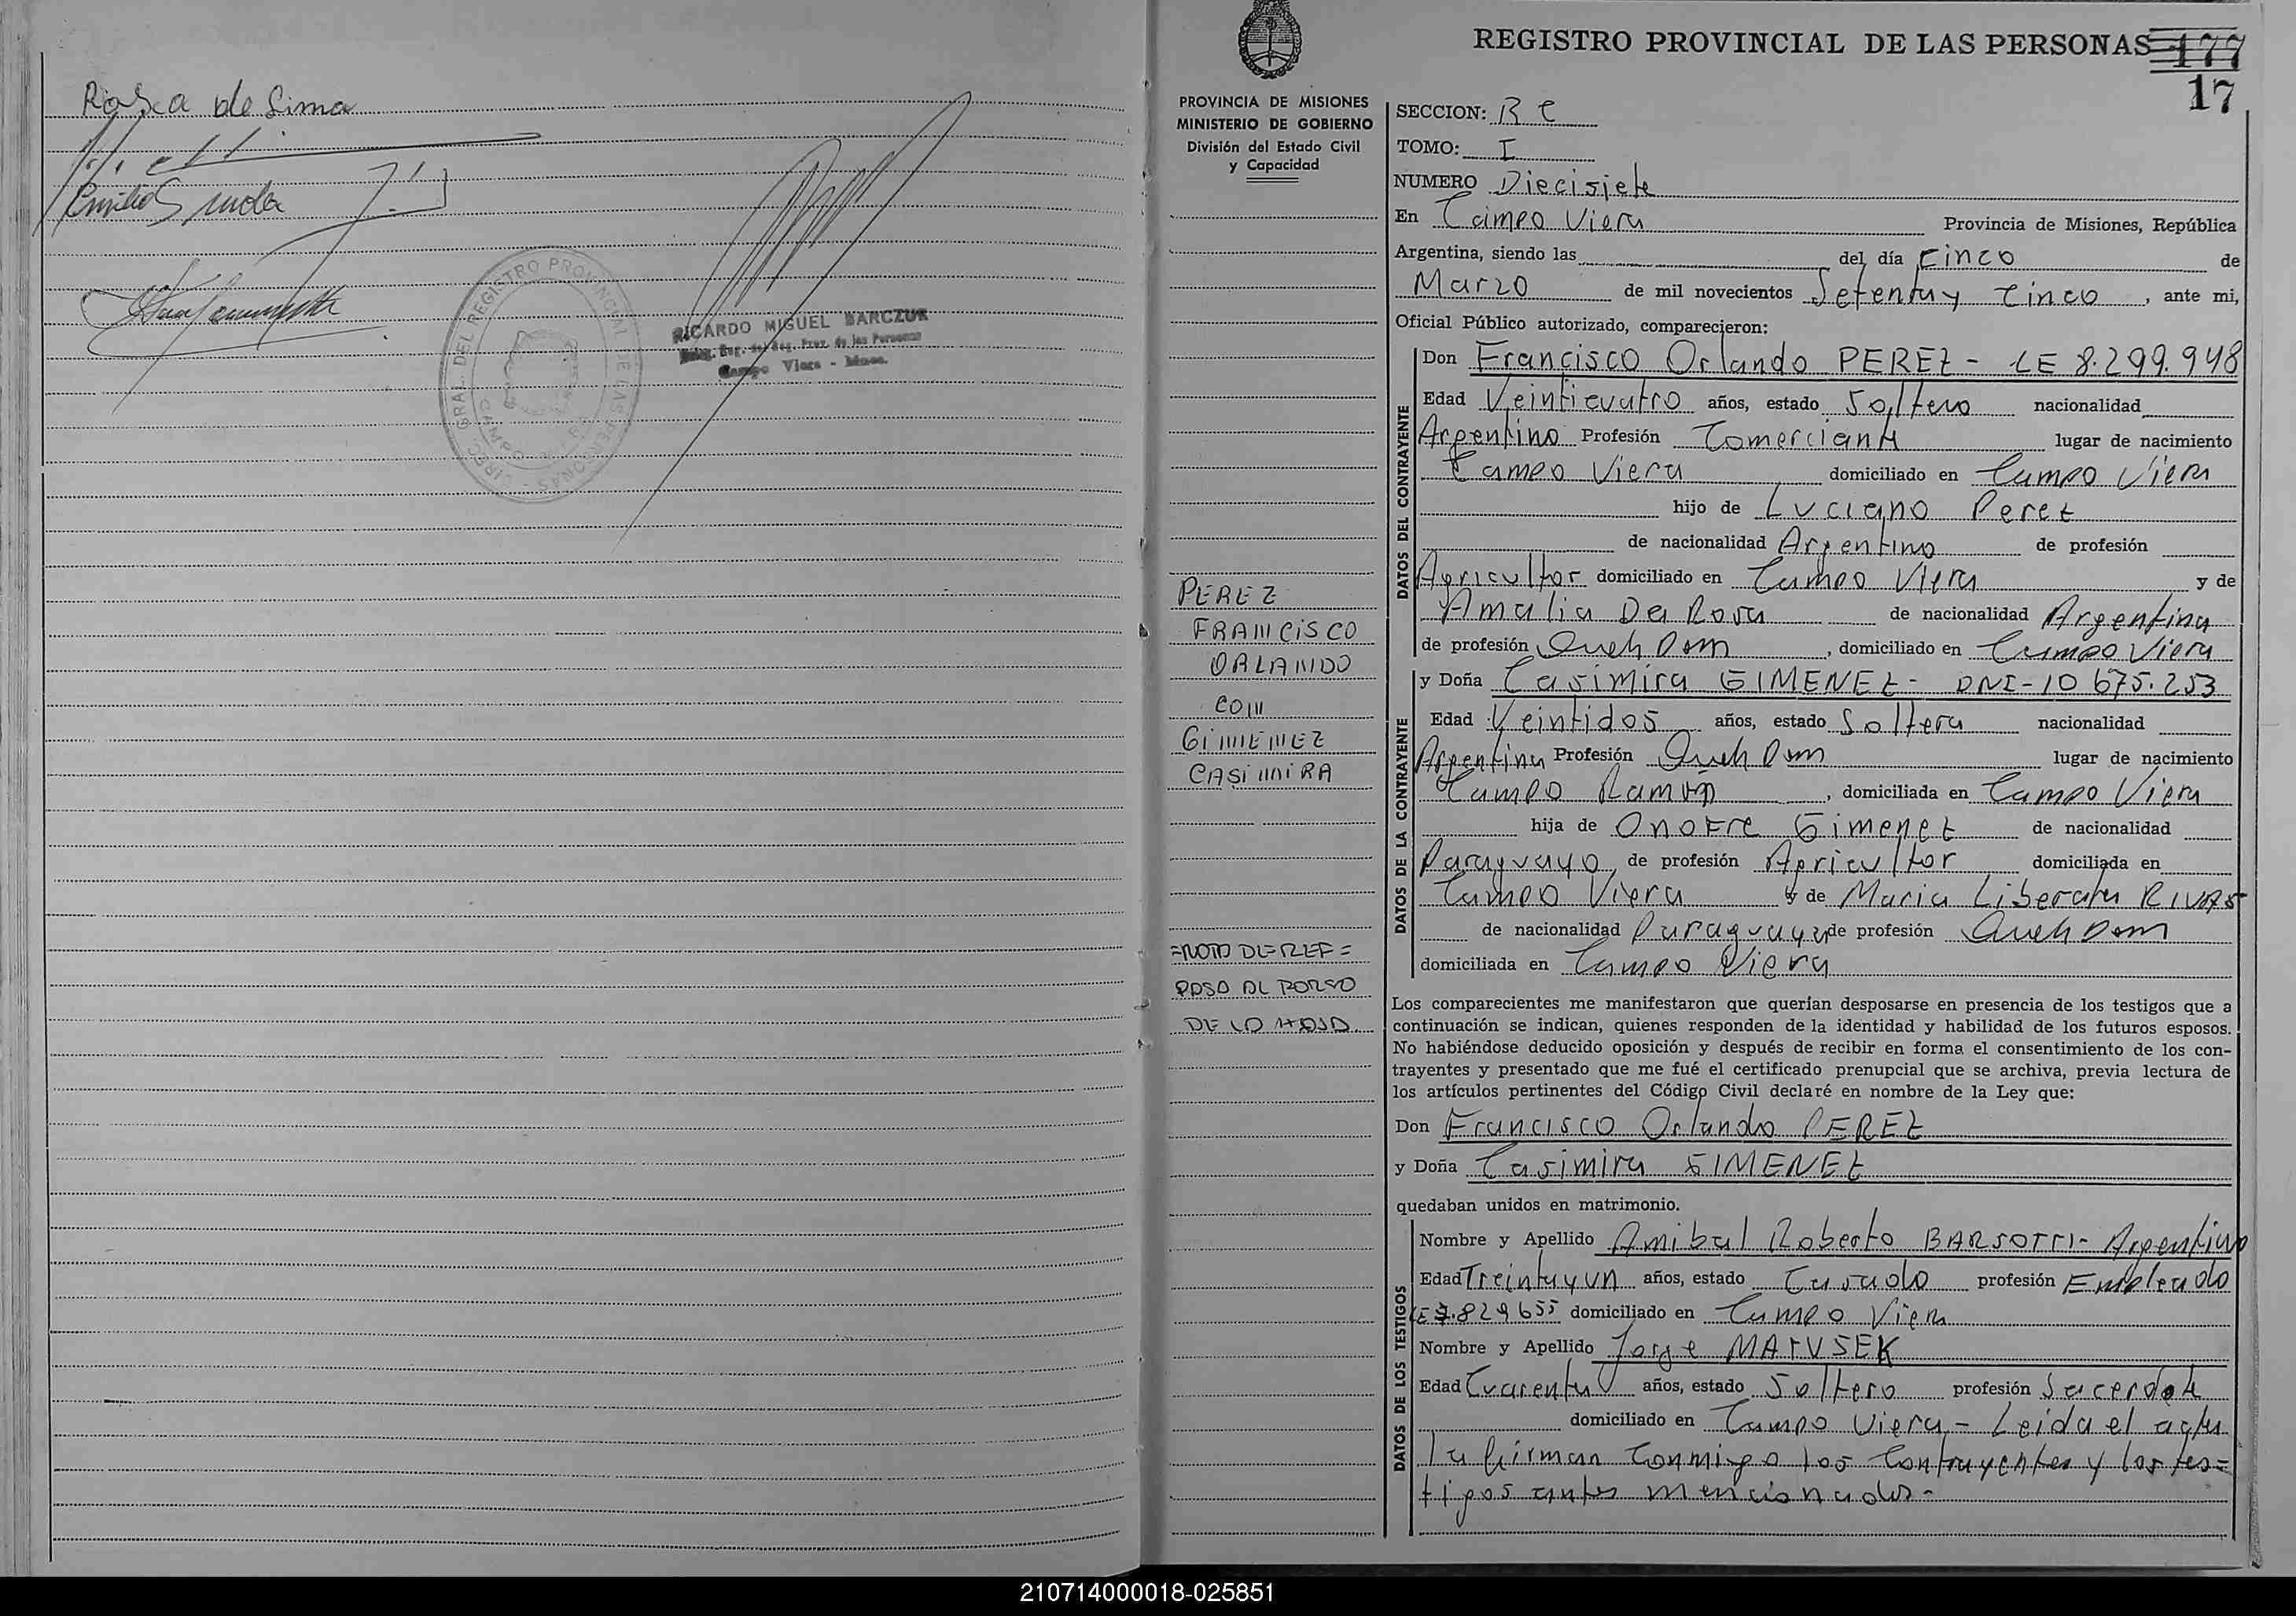 Rosa de Lima
Emilio
DIREC. GRAL. DEL REGISTRO PROVINCIAL DE LAS PERSONAS
CAMPO
RICARDO MIGUEL BARCZUK
Reg. Prov. de las Personas
Campo Viera - Mnes.
REGISTRO PROVINCIAL DE LAS PERSONAS 177
17
PROVINCIA DE MISIONES
MINISTERIO DE GOBIERNO
División del Estado Civil
y Capacidad
PEREZ
FRANCISCO
ORLANDO
CON
GIMENEZ
CASIMIRA
=NOTA DE REF=
PASA AL DORSO
DE LA HOJA
SECCION: R C
TOMO: I
NUMERO Diecisiete
En Campo Viera Provincia de Misiones, República
Argentina, siendo las del día Cinco de
Marzo de mil novecientos Setenta y Cinco, ante mi,
Oficial Público autorizado, comparecieron:
DATOS DEL CONTRAYENTE
Don Francisco Orlando PEREZ - LE 8.299.948
Edad Veinticuatro años, estado Soltero nacionalidad
Argentino Profesión Comerciante lugar de nacimiento
Campo Viera domiciliado en Campo Viera
hijo de Luciano Perez
de nacionalidad Argentino de profesión
Agricultor domiciliado en Campo Viera y de
Amalia Da Rosa de nacionalidad Argentina
de profesión Queh Dom, domiciliado en Campo Viera
y Doña Casimira GIMENEZ - DNI-10 675.253
DATOS DE LA CONTRAYENTE
Edad Veintidos años, estado Soltera nacionalidad
Argentina Profesión Queh Dom lugar de nacimiento
Campo Ramón, domiciliada en Campo Viera
hija de Onofre Gimenez de nacionalidad
Paraguayo de profesión Agricultor domiciliada en
Campo Viera y de Maria Liberata RIVAS
de nacionalidad Paraguaya de profesión Queh Dom
domiciliada en Campo Viera
Los comparecientes me manifestaron que querían desposarse en presencia de los testigos que a
continuación se indican, quienes responden de la identidad y habilidad de los futuros esposos.
No habiéndose deducido oposición y después de recibir en forma el consentimiento de los con-
trayentes y presentado que me fué el certificado prenupcial que se archiva, previa lectura de
los artículos pertinentes del Código Civil declaré en nombre de la Ley que:
Don Francisco Orlando PEREZ
y Doña Casimira GIMENEZ
quedaban unidos en matrimonio.
DATOS DE LOS TESTIGOS
Nombre y Apellido Anibal Roberto BARSOTTI - Argentino
Edad Treinta y un años, estado Casado profesión Empleado
LE 7.829655 domiciliado en Campo Viera
Nombre y Apellido Jorge MATUSEK
Edad Cuarenta años, estado Soltero profesión Sacerdote
domiciliado en Campo Viera - Leida el acta
la firman conmigo los contrayentes y los tes=
tigos antes mencionados.-
210714000018-025851